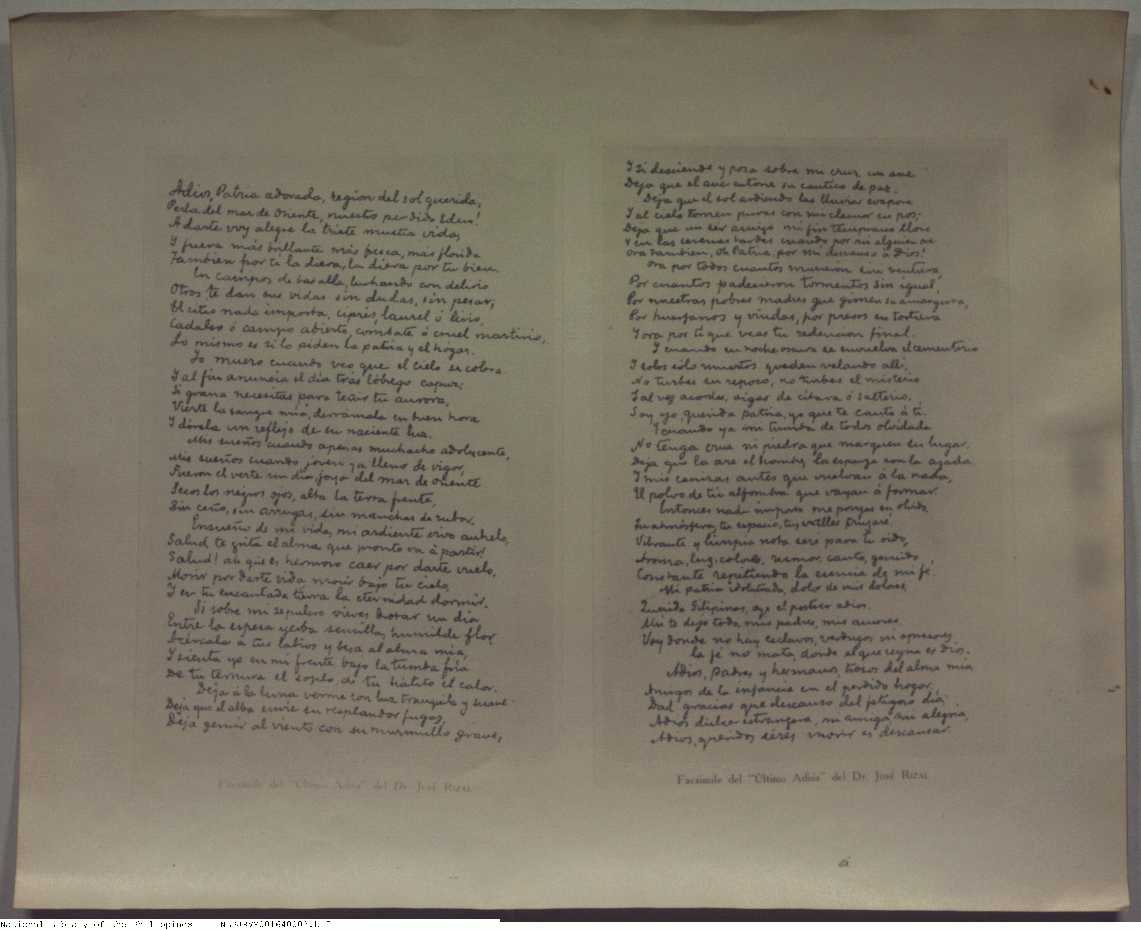 Adios, Patria adorada, region del sol querida,
Perla del mar de Oriente, nuestro perdido Eden!
A darte voy alegre la triste mustia vida,
Y fuera más brillante más fresca, más florida
Tambien por ti la diera, la diera por tu bien.
En campos de batalla, luchando con delirio
Otros te dan sus vidas sin dudas, sin pesar;
El sitio nada importa, ciprés, laurel ó lirio,
Cadalso ó campo abierto, combate ó cruel martirio,
Lo mismo es si lo piden la patria y el hogar.
Yo muero cuando veo que el cielo se colora
Y al fin anuncia el dia tras lóbrego capuz;
Si grana necesitas para teñir tu aurora,
Vierte la sangre mia, derrámala en buen hora
Y dórela un reflejo de su naciente luz.
Mis sueños cuando apenas muchacho adolescente,
Mis sueños cuando joven ya lleno de vigor,
Fueron el verte un dia, joya del mar de oriente
Secos los negros ojos, alta la tersa frente,
Sin ceño, sin arrugas, sin manchas de rubor.
Ensueño de mi vida, mi ardiente vivo anhelo,
Salud te grita el alma que pronto va á partir!
Salud! ah que es hermoso caer por darte vuelo,
Morir por darte vida, morir bajo tu cielo,
Y en tu encantada tierra la eternidad dormir.
Si sobre mi sepulcro vieres brotar un dia
Entre la espesa yerba sencilla, humilde flor,
Acércala á tus labios y besa al alma mia,
Y sienta yo en mi frente bajo la tumba fria
De tu ternura el soplo, de tu hálito el calor.
Deja á la luna verme con luz tranquila y suave
Deja que el alba envie su resplandor fugaz,
Deja gemir al viento con su murmullo grave,
Facsimile del "Último Adiós" del Dr. José Rizal
Y si desciende y posa sobre mi cruz un ave
Deja que el ave entone su cantico de paz.
Deja que el sol ardiendo las lluvias evapore
Y al cielo tornen puras con mi clamor en pos;
Deja que un ser amigo mi fin temprano llore
Y en las serenas tardes cuando por mi alguien ore
Ora tambien, Oh Patria, por mi descanso á Dios!
Ora por todos cuantos murieron sin ventura,
Por cuantos padecieron tormentos sin igual,
Por nuestras pobres madres que gimen su amargura,
Por huerfanos y viudas, por presos en tortura
Y ora por ti que veas tu redencion final.
Y cuando en noche oscura se envuelva el cementerio
Y solos sólo muertos queden velando allí,
No turbes su reposo, no turbes el misterio
Tal vez acordes oigas de citara ó salterio,
Soy yo, querida Patria, yo que te canto á ti.
Y cuando ya mi tumba de todos olvidada
No tenga cruz ni piedra que marquen su lugar,
Deja que la are el hombre, la esparza con la azada
Y mis cenizas antes que vuelvan á la nada,
El polvo de tu alfombra que vayan á formar.
Entonces nada importa me pongas en olvido,
Tu atmósfera, tu espacio, tus valles cruzaré,
Vibrante y limpia nota seré para tu oido,
Aroma, luz, colores, rumor, canto, gemido
Constante repitiendo la esencia de mi fé.
Mi patria idolatrada, dolor de mis dolores,
Querida Filipinas, oye el postrer adios.
Ahi te dejo todo, mis padres, mis amores.
Voy donde no hay esclavos, verdugos ni opresores,
Donde la fé no mata, donde el que reyna es Dios.
Adios, padres y hermanos, trozos del alma mia
Amigos de la infancia en el perdido hogar,
Dad gracias que descanso del fatigoso dia;
Adios, dulce extrangera, mi amiga, mi alegria,
Adios, queridos séres morir es descansar.
Facsimile del "Último Adiós" del Dr. José Rizal
National Library of the Philippines